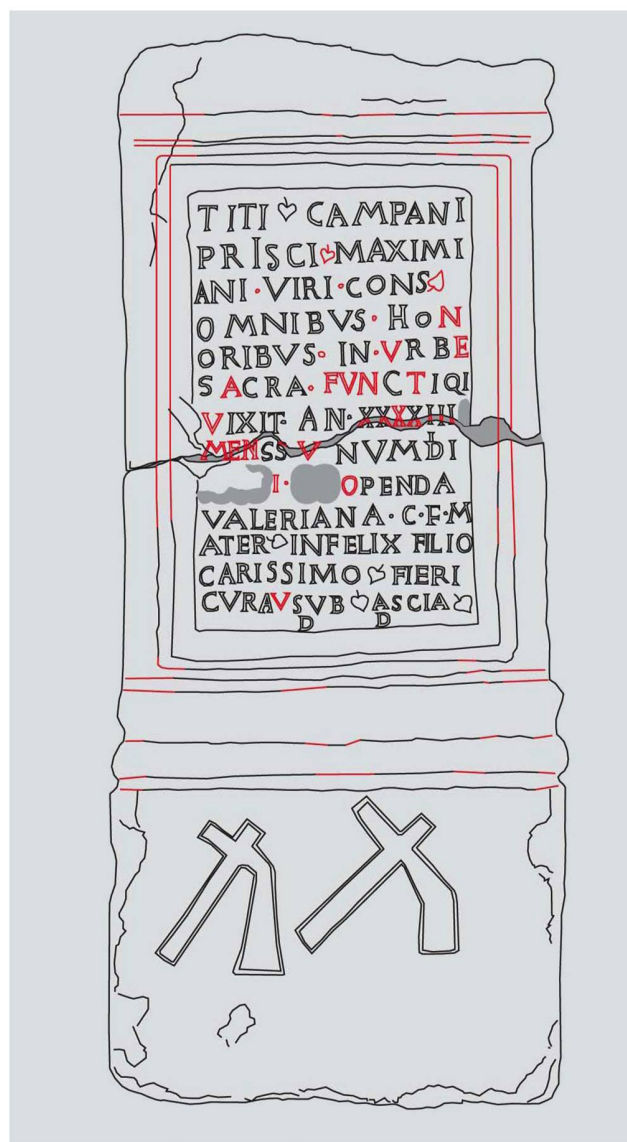 TITI CAMPANI
PRISCI MAXIMI
ANI · VIRI · CONS
OMNIBVS · HON
ORIBVS · IN · VRBE
SACRA · FVNCTIQI
VIXIT · AN · XXXXIII
MENSS V NVMDI
I · OPENDA
VALERIANA · C · F · M
ATER INFELIX FILIO
CARISSIMO FIERI
CVRAV SVB ASCIA
D D